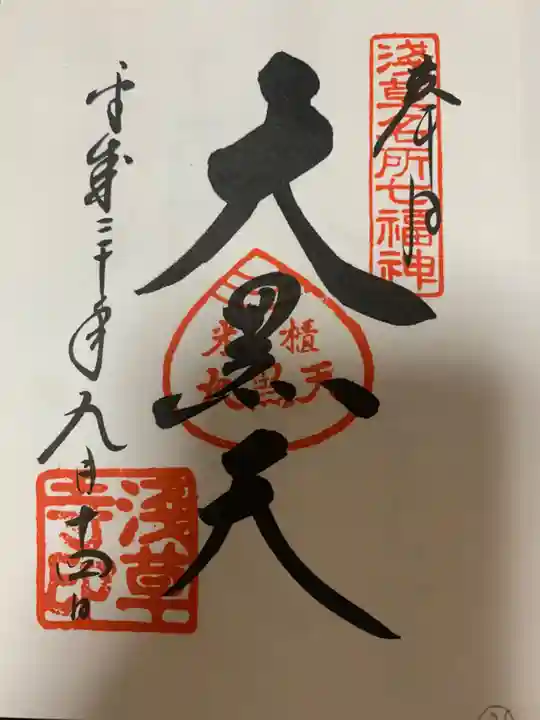 奉拝
浅草名所七福神
大黒天
米櫃
大黒天
平成三十年九月十四日
浅草寺印